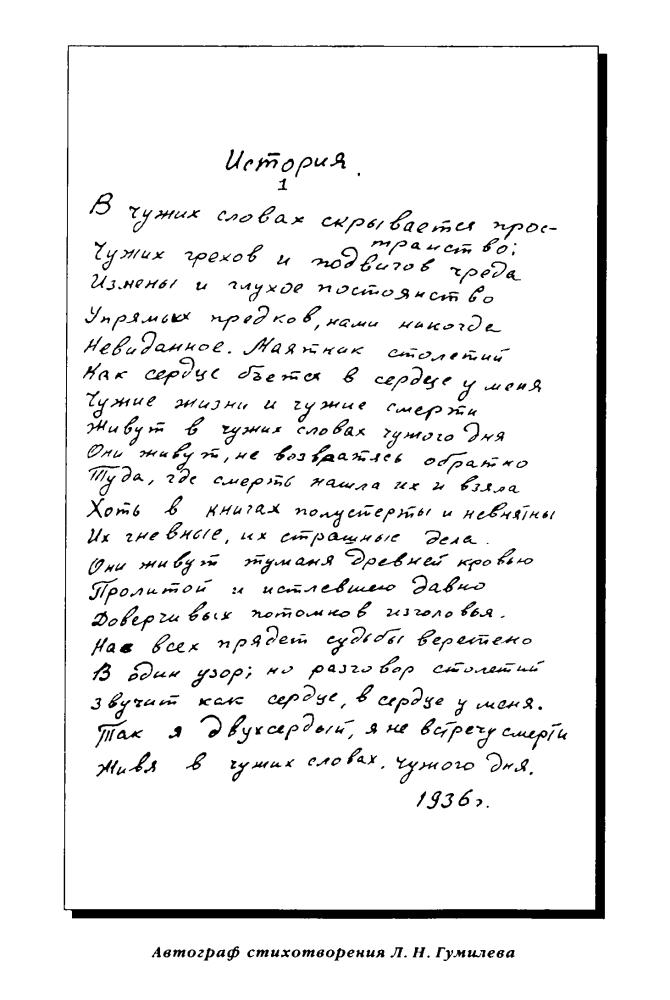 История.
1
В чужих словах скрывается прос-
транство;
Чужих грехов и подвигов чреда
Измены и глухое постоянство
Упрямых предков, нами никогда
Невиданное. Маятник столетий
Как сердце бъется в сердце у меня
Чужие жизни и чужие смерти
Живут в чужих словах чужого дня
Они живут, не возвратясь обратно
Туда, где смерть нашла их и взяла
Хоть в книгах полустерты и невнятны
Их гневные, их страшные дела.
Они живут туманя древней кровью
Пролитой и истлевшею давно
Доверчивых потомков изголовья.
Нас всех прядет судьбы веретено
В один узор; но разговор столетий
звучит как сердце, в сердце у меня.
Так я двухсердый, я не встречу смерти
Живя в чужих словах. чужого дня.
1936г.
Автограф стихотворения Л. Н. Гумилева